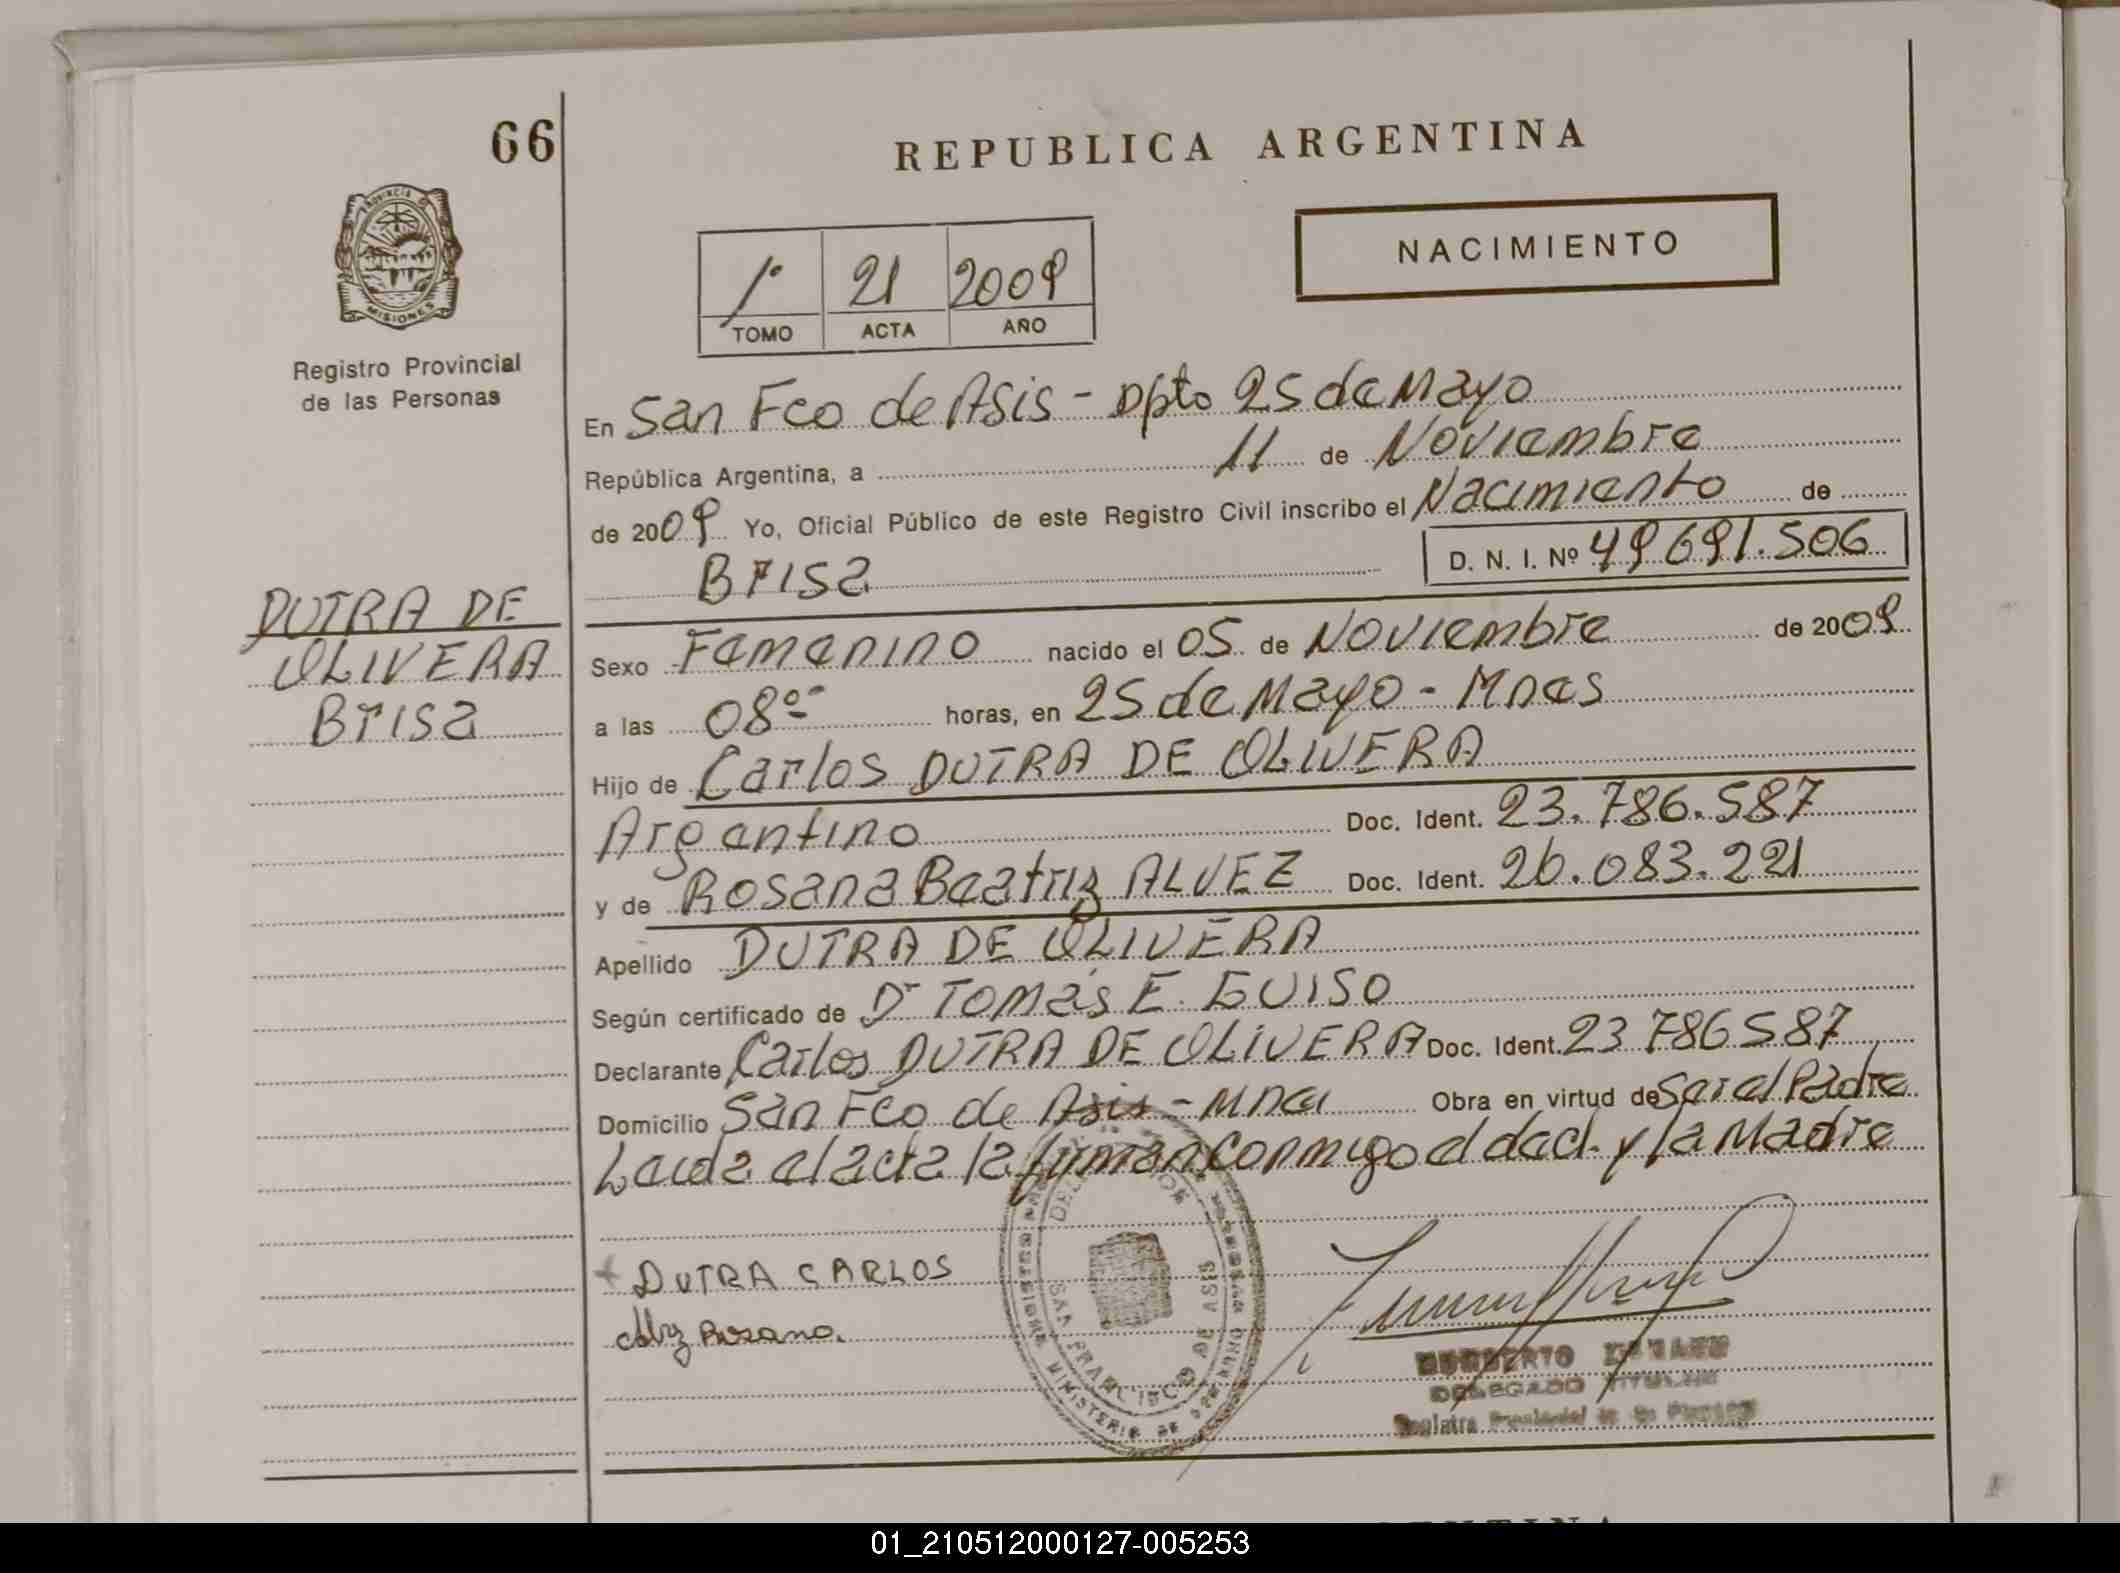 66
REPUBLICA ARGENTINA
NACIMIENTO
1º 21 2009
TOMO ACTA AÑO
PROVINCIA DE
MISIONES
Registro Provincial
de las Personas
En San Fco de Asis - Dpto 25 de Mayo
República Argentina, a 11 de Noviembre
de 2009 Yo, Oficial Público de este Registro Civil inscribo el Nacimiento de
Brisa D. N. I. Nº 49691.506
DUTRA DE
OLIVERA
Brisa
Sexo Femenino nacido el 05 de Noviembre de 2009
a las 08 horas, en 25 de Mayo - Mnes
Hijo de Carlos DUTRA DE OLIVERA
Argentino Doc. Ident. 23.786.587
y de Rosana Beatriz ALVEZ Doc. Ident. 26.083.221
Apellido DUTRA DE OLIVERA
Según certificado de Dr Tomás E. GUISO
Declarante Carlos DUTRA DE OLIVERA Doc. Ident. 23 786587
Domicilio San Fco de Asis - Mnes Obra en virtud de Ser el Padre
Leida el acta la firman conmigo el dacl. y la Madre
DUTRA CARLOS
Rosana.
SAN FRANCISCO DE ASIS
MINISTERIO DE
DELEGADO TITULAR
ENTINA
01_210512000127-005253